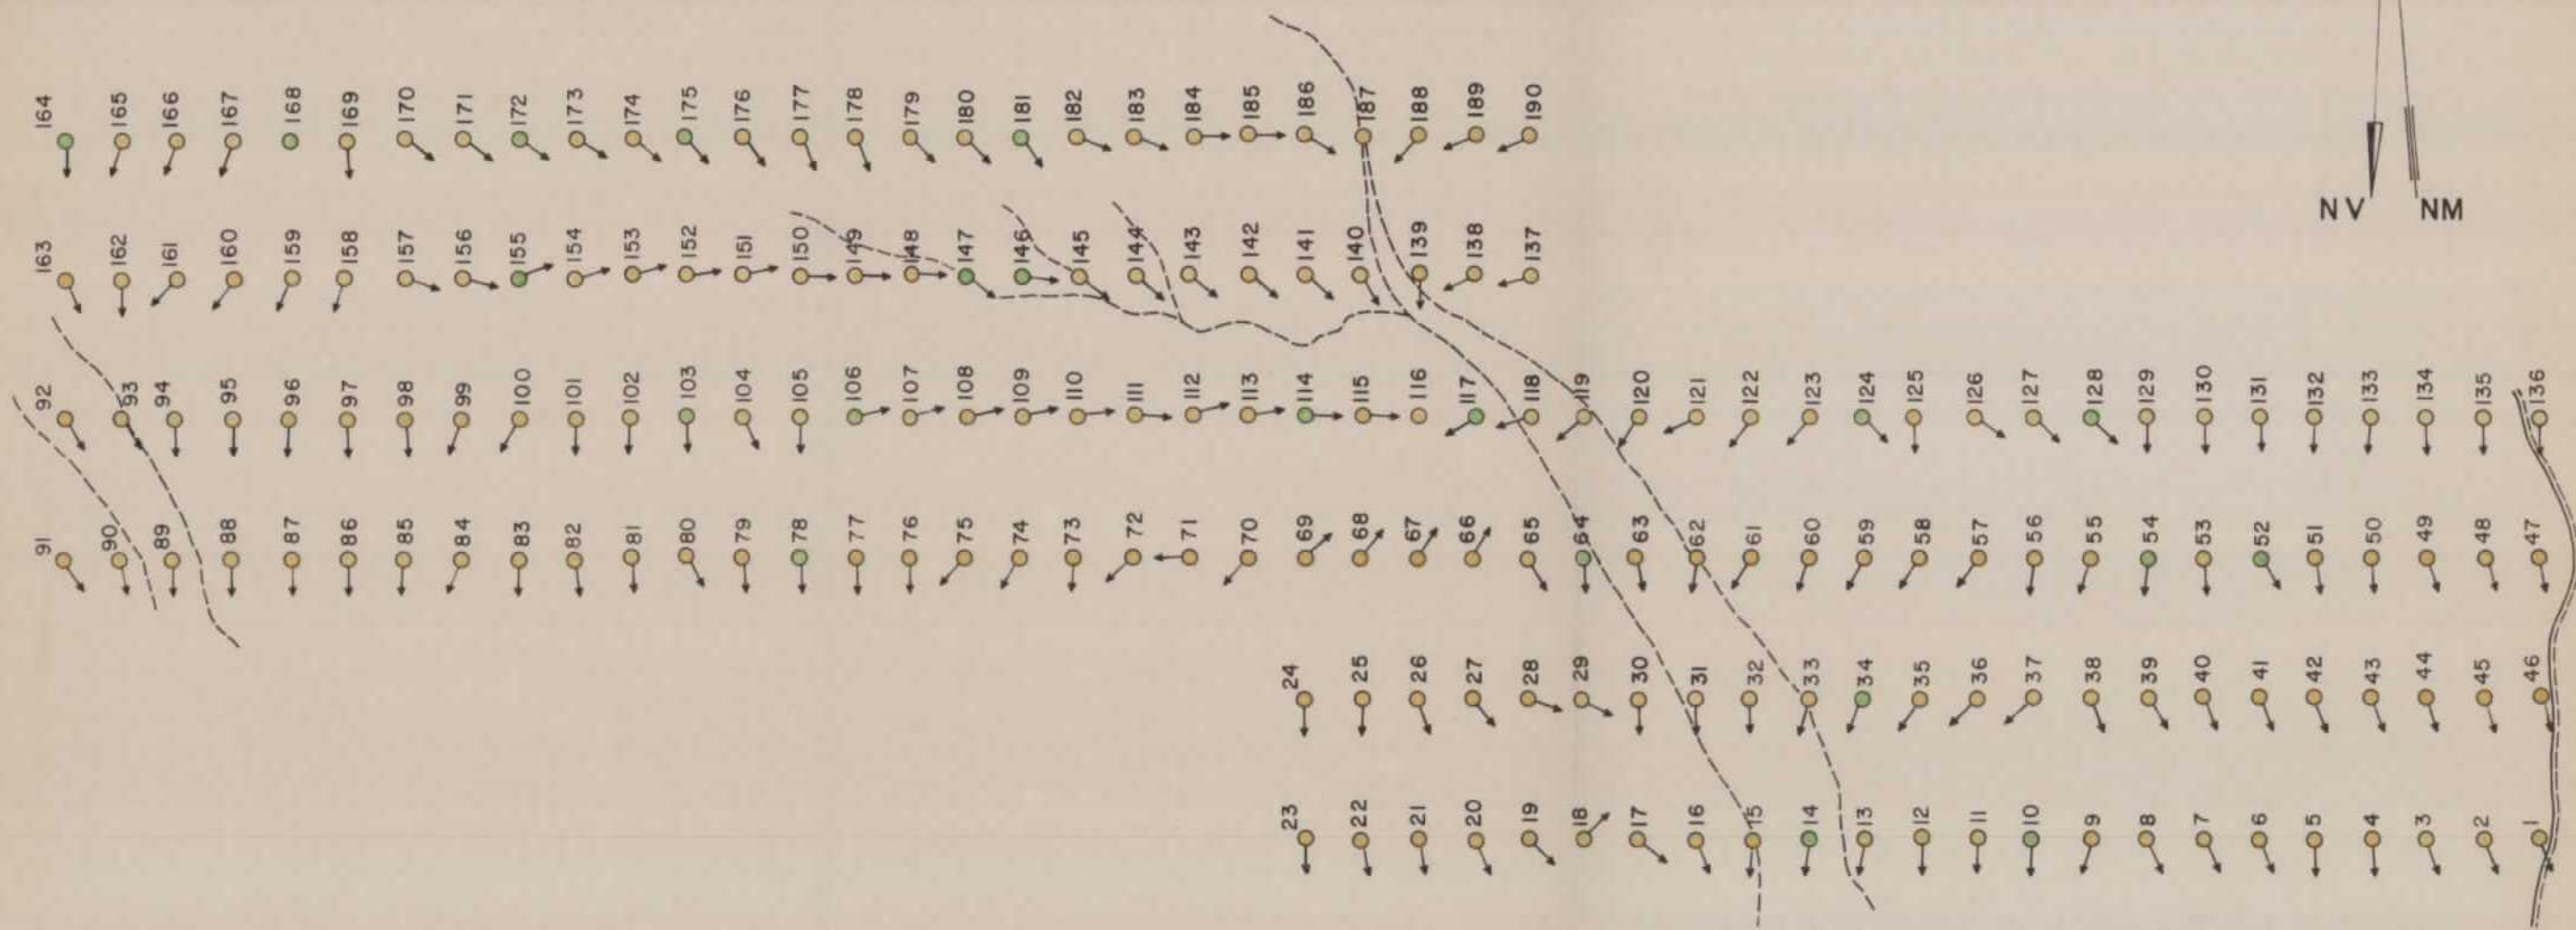 164 165 166 167 168 169 170 171 172 173 174 175 176 177 178 179 180 181 182 183 184 185 186 187 188 189 190
NV NM
163 162 161 160 159 158 157 156 155 154 153 152 151 150 149 148 147 146 145 144 143 142 141 140 139 138 137
92 93 94 95 96 97 98 99 100 101 102 103 104 105 106 107 108 109 110 111 112 113 114 115 116 117 118 119 120 121 122 123 124 125 126 127 128 129 130 131 132 133 134 135 136
91 90 89 88 87 86 85 84 83 82 81 80 79 78 77 76 75 74 73 72 71 70 69 68 67 66 65 64 63 62 61 60 59 58 57 56 55 54 53 52 51 50 49 48 47
24 25 26 27 28 29 30 31 32 33 34 35 36 37 38 39 40 41 42 43 44 45 46
23 22 21 20 19 18 17 16 15 14 13 12 11 10 9 8 7 6 5 4 3 2 1